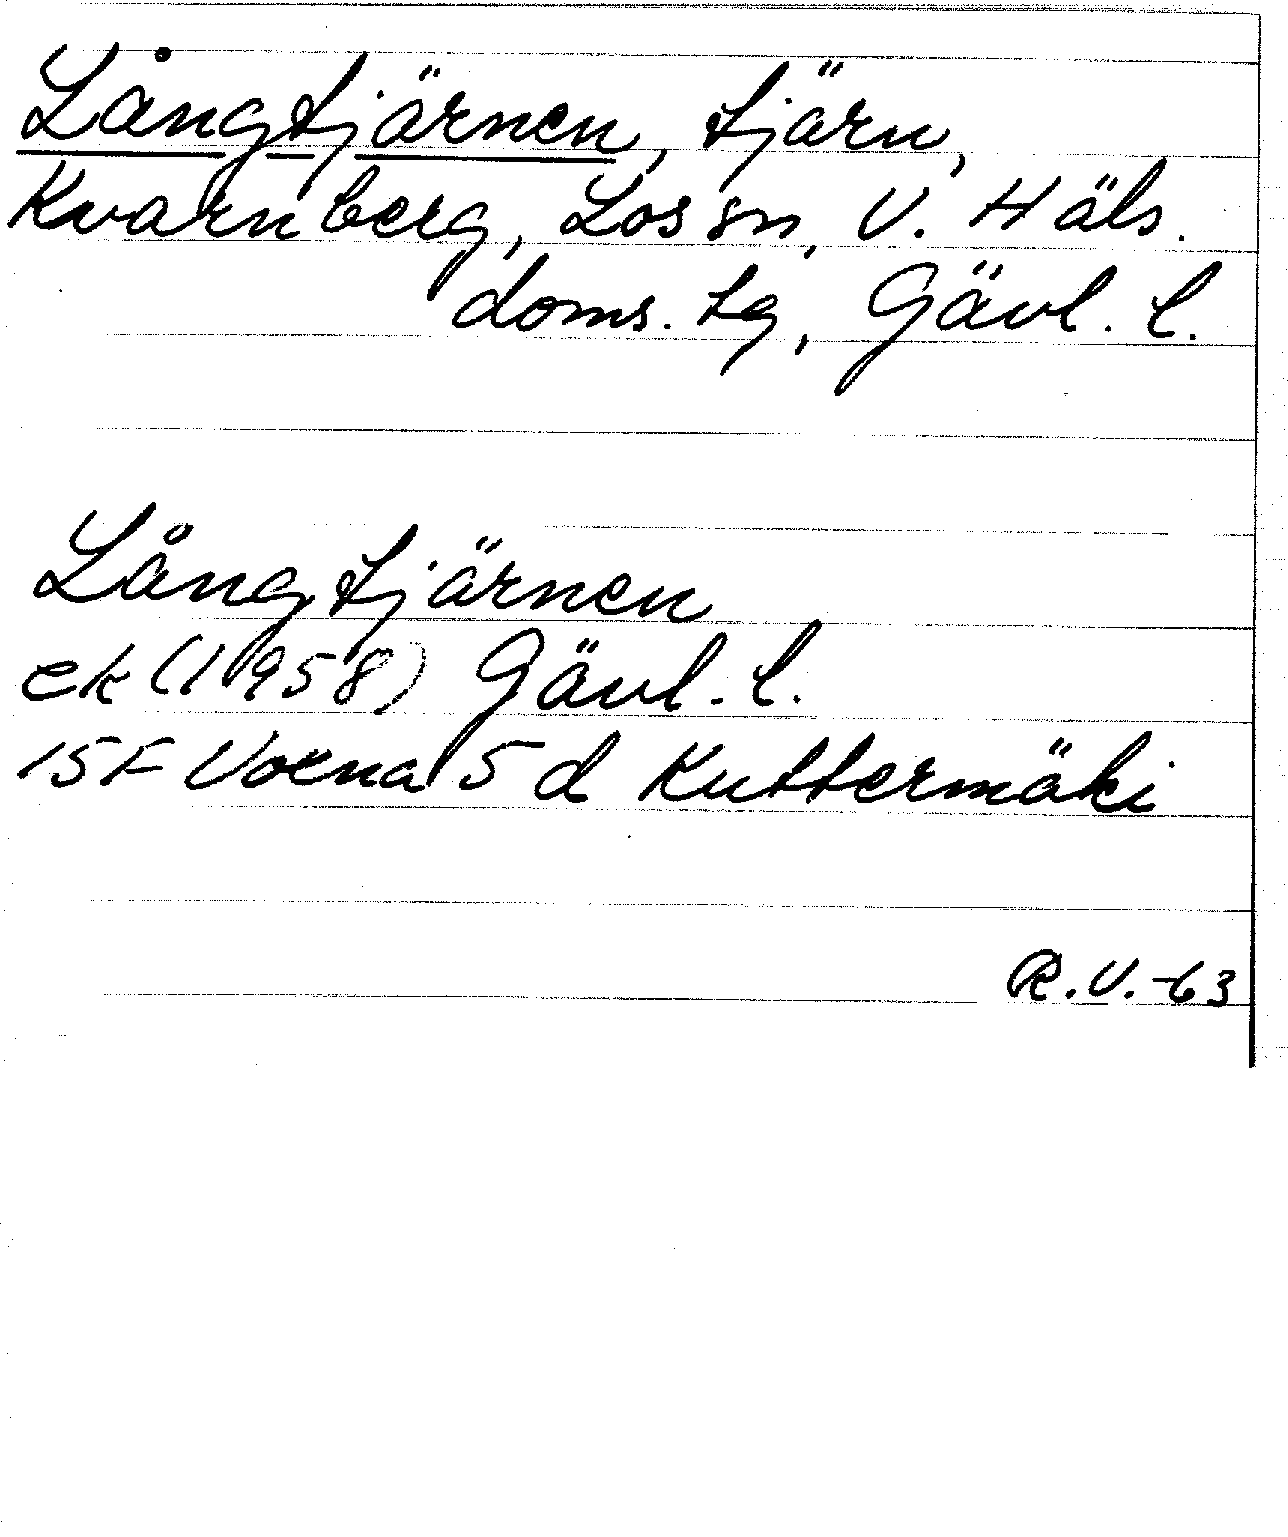 Långtjärnen, tjärn,
Kvarnberg, Los sn, V. Häls.
doms. tg, Gävl. l.
Långtjärnen
ek (1958) Gävl. l.
15F Voxna 5 d Kuttermäki
R.V. -63